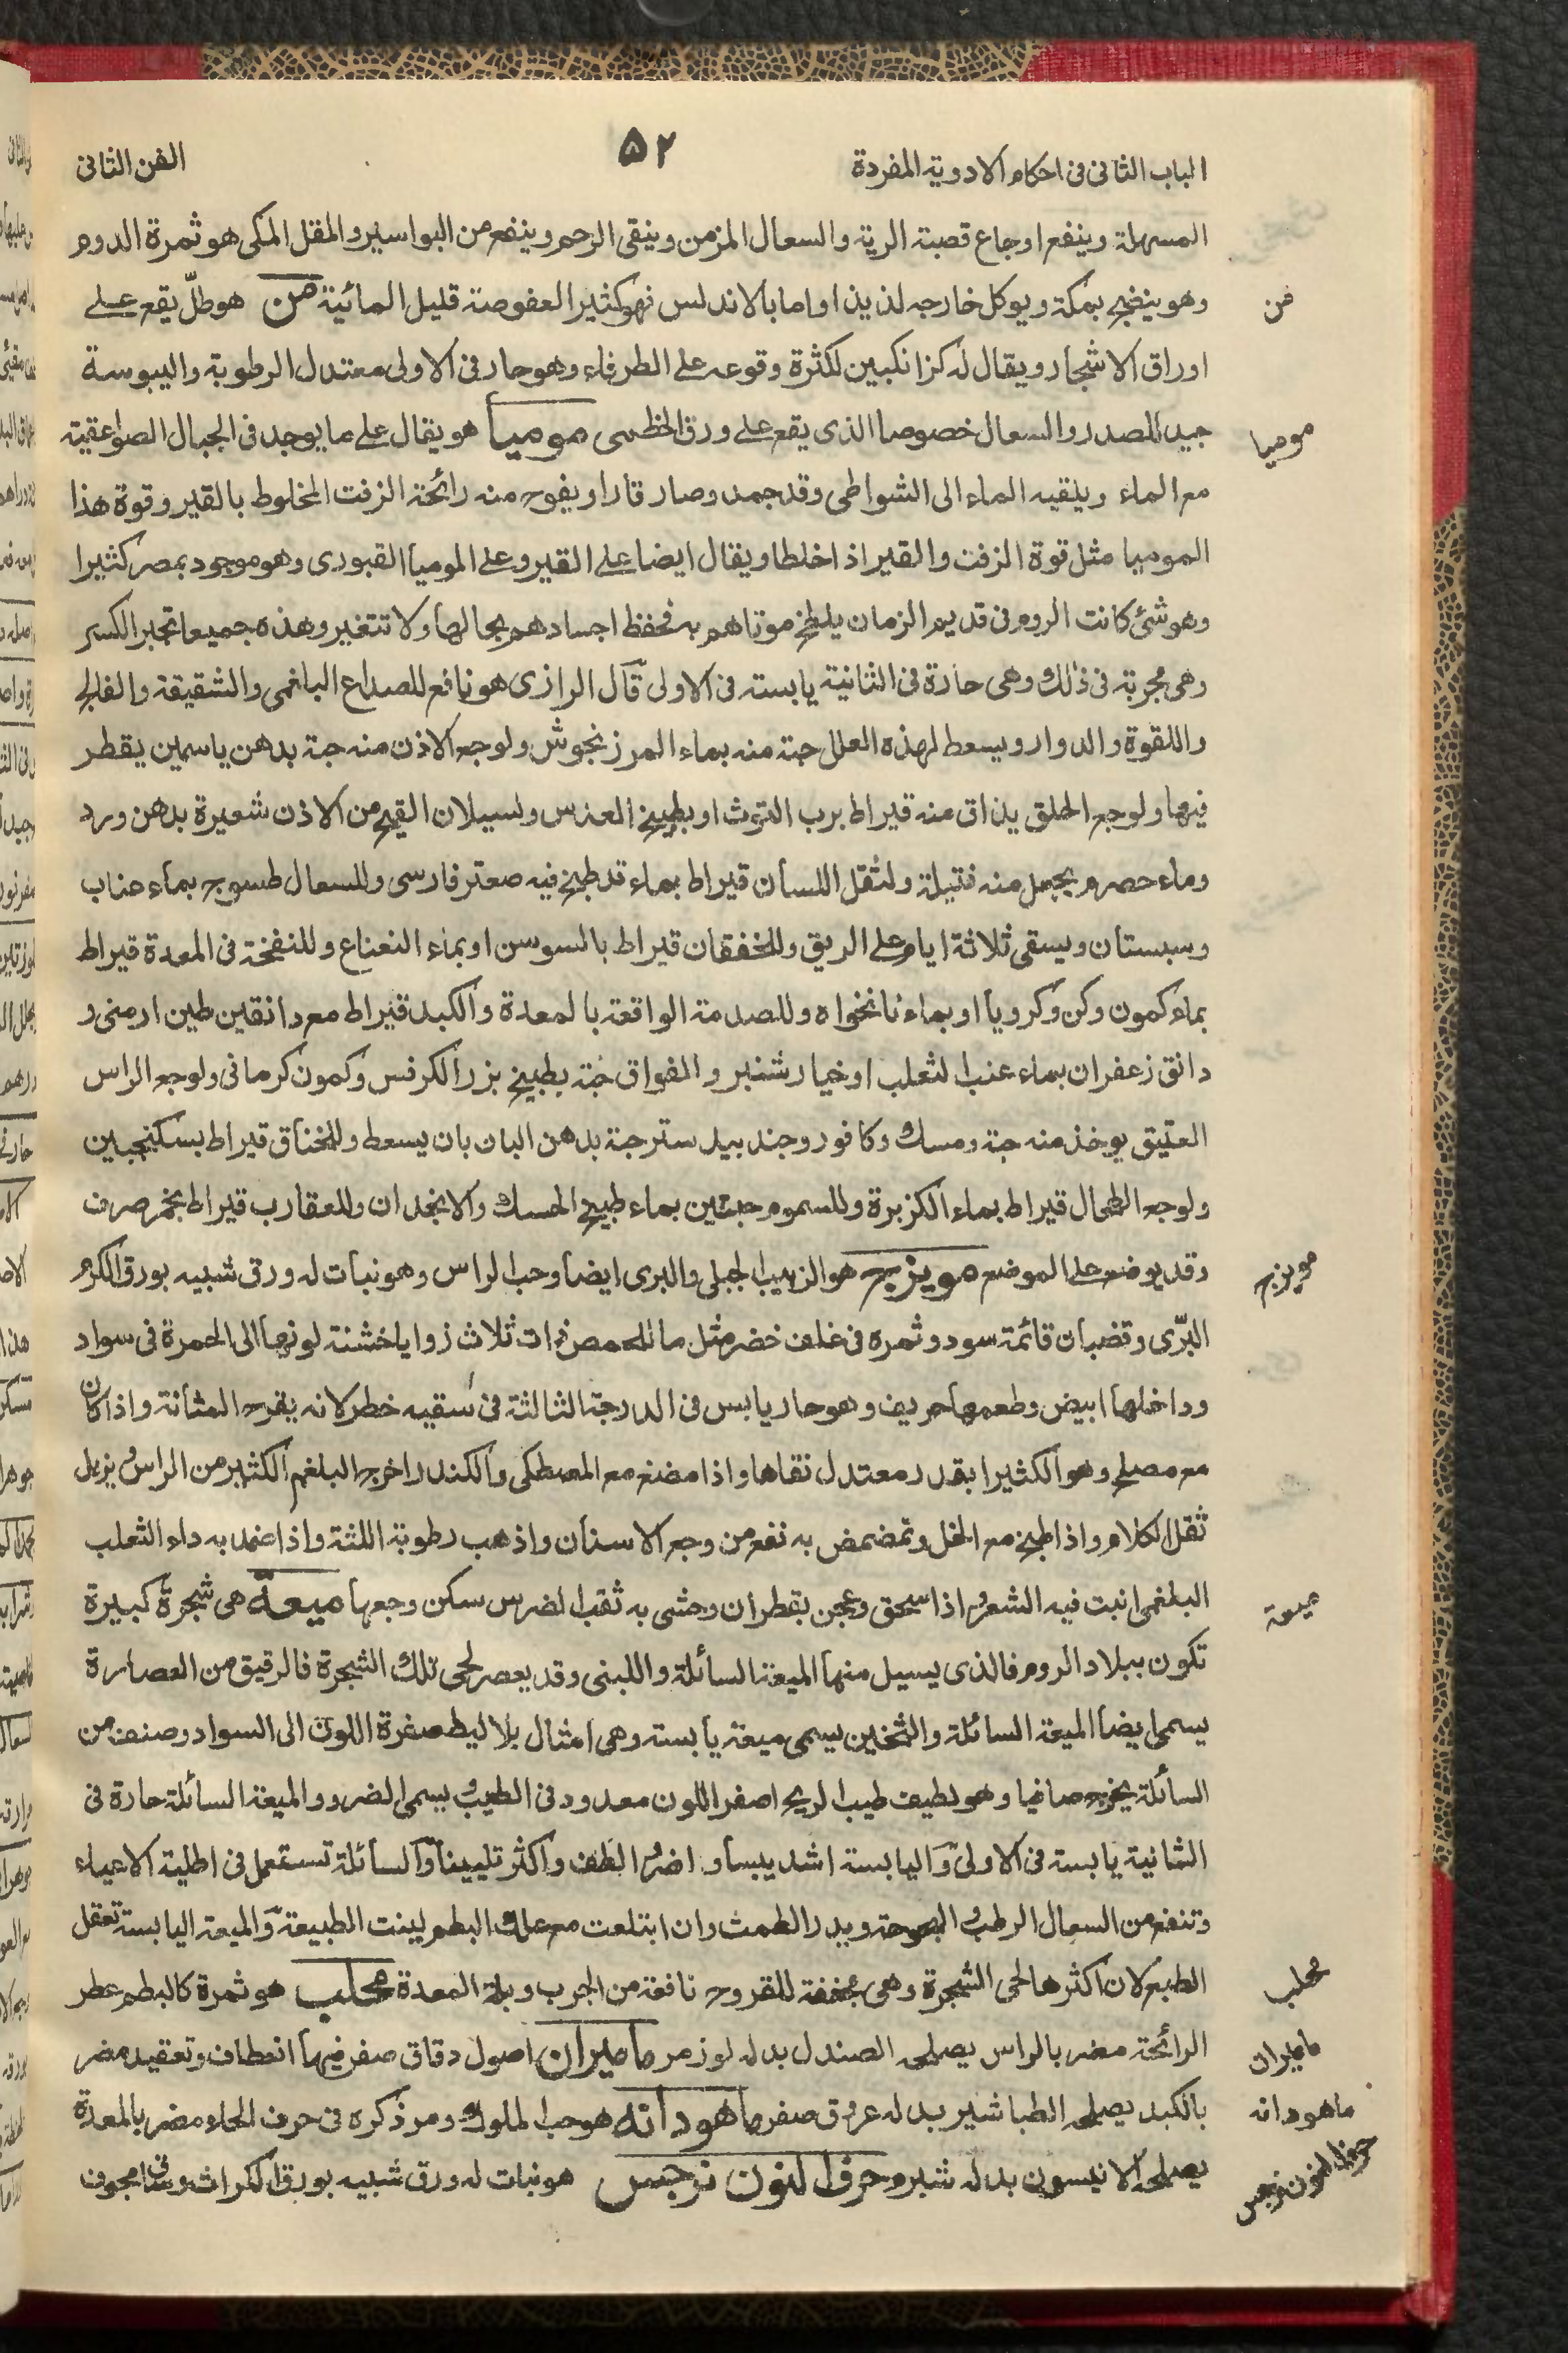 الباب الثانى فى احكام الادوية المفردة
٥٢
الفن الثانى
المسهلة وينفع اوجاع قصبة الرية والسعال المزمن وينقى الرحم وينفع من البواسير والمقل المكى هو ثمرة الدوم
وهو ينضج بمكة ويوكل خارجه لذيذا واما بالاندلس فهو كثير العفوصة قليل المائية من هو طلّ يقع على
من
اوراق الاشجار ويقال له كزانكبين لكثرة وقوعه على الطرفاء وهو حار فى الاولى معتدل الرطوبة واليبوسة
جيد للصدر والسعال خصوصا الذى يقع على ورق الخطمى موميا هو يقال على ما يوجد فى الجبال الصواعقية
موميا
مع الماء ويلقيه الماء الى الشواطى وقد جمد وصار قارا ويفوح منه رائحة الزفت المخلوط بالقير وقوة هذا
الموميا مثل قوة الزفت والقير اذا خلطا ويقال ايضا على القير وعلى الموميا القبورى وهو موجود بمصر كثيرا
وهو شئ كانت الروم فى قديم الزمان يلطخ موتاهم به فحفظ اجسادهم بحالها ولا تتغير وهذه جميعا تجبر الكسر
وهى مجربة فى ذلك وهى حارة فى الثانية يابسته فى الاولى قال الرازى هو نافع للصداع البلغمى والشقيقة والفالج
واللقوة والدوار ويسعط لهذه العلل حبة منه بماء المرزنجوش ولوجع الاذن منه حبة بدهن ياسمين يقطر
فيها ولوجع الحلق يذاق منه قيراط برب التوث او بطبيخ العدس ولسيلان القيح من الاذن شعيرة بدهن ورد
وماء حصرم يجعل منه فتيلة ولثقل اللسان قيراط بماء قد طبخ فيه صعتر فارسى وللسعال طسوج بماء عناب
وسبستان ويسقى ثلاثة ايام على الريق وللخفقان قيراط بالسوسن او بماء النعناع وللنفخة فى المعدة قيراط
بماء كمون وكرويا او بماء نانخواه وللصدمة الواقعة بالمعدة والكبد قيراط مع دانقين طين ارمنى و
دانق زعفران بماء عنب الثعلب او خيارشنبر والفواق حبة بطبيخ بزر الكرفس وكمون كرمانى ولوجع الراس
العتيق يوخذ منه حبة ومسك وكافور وجندبيدستر حبة بدهن البان بان يسعط وللخناق قيراط بسكنجبين
ولوجع الطحال قيراط بماء الكزبرة وللسموم حبتين بماء طبيخ الحسك والانجدان وللعقارب قيراط بخمر صرف
وقد يوضع على الموضع مويزج هو الزبيب الجبلى والبرى ايضا وحب الراس وهو نبات له ورق شبيه بورق الكرم
مويزج
البرّى وقضبان قائمة سود وثمره فى غلف خضر مثل ما للحمص ذات ثلاث زوايا خشنة لونها الى الحمرة فى سواد
وداخلها ابيض وطعمها حريف وهو حار يابس فى الدرجة الثالثة فى سقيه خطر لانه يقرح المثانة واذا كان
مع مصلح وهو الكثيرا بقدر معتدل نقاها واذا مضغ مع المصطكى والكندر اخرج البلغم الكثير من الراس ويزيل
ثقل الكلام واذا طبخ مع الخل وتمضمض به نفع من وجع الاسنان واذهب رطوبة اللثة واذا ضمد به داء الثعلب
البلغمى انبت فيه الشعر واذا سحق وعجن بقطران وحشى به ثقب الضرس سكن وجعها ميعة هى شجرة كبيرة
ميعة
تكون ببلاد الروم فالذى يسيل منها الميعة السائلة واللبنى وقد يعصر لحى تلك الشجرة فالرقيق من العصارة
يسمى ايضا الميعة السائلة والثخين يسمى ميعة يابسته وهى امثال بلاليط صفرة اللون الى السواد وصنف من
السائلة يخرج صافيا وهو لطيف طيب الريح اصفر اللون معدود فى الطيب ويسمى الضرو والميعة السائلة حارة فى
الثانية يابسة فى الاولى واليابسة اشد يبسا و اضر الطف واكثر تليينا والسائلة تستعمل فى اطلية الاعياء
وتنفع من السعال الرطب والبحوحة ويدر الطمث وان ابتلعت مع علك البطم لينت الطبيعة والميعة اليابسة تعقل
الطبع لان اكثرها لحى الشجرة وهى مجففة للقروح نافعة من الجرب وبلة المعدة محلب هو ثمرة كالبطم عطر
محلب
الرائحة مضر بالراس يصلحه الصندل بدله لوز مر ماميران اصول دقاق صفر فيها انعطاف وتعقيد مضر
ماميران
بالكبد يصلحه الطباشير بدله عروق صفر ماهودانه هو حب الملوك ومر ذكره فى حرف الحاء مضر بالمعدة
ماهودانه
يصلحه الانيسون بدله شبرم حرف النون نرجس هو نبات له ورق شبيه بورق الكراث وساق مجوف
حرف النون نرجس